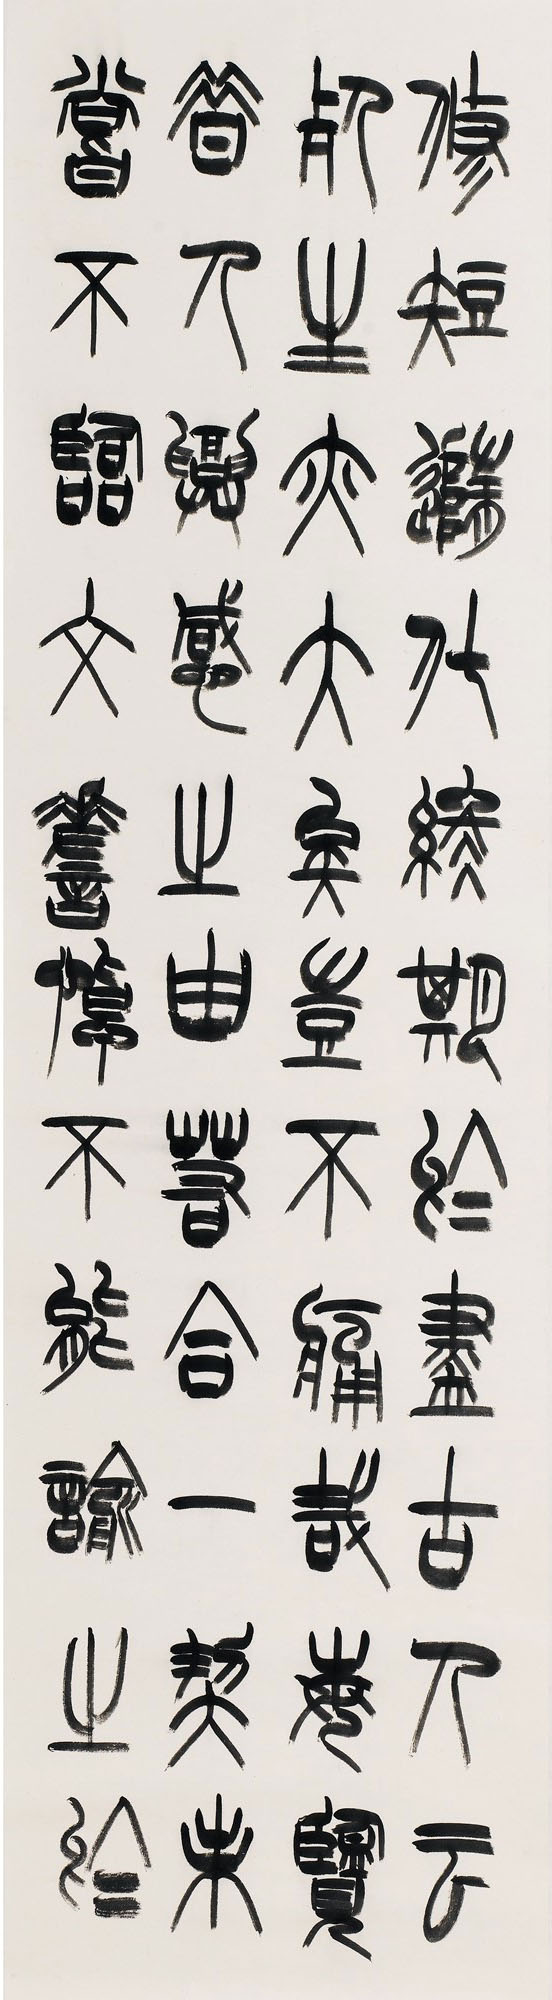 修短隨化終期於盡古人云
死生亦大矣豈不痛哉每覽
昔人興感之由若合一契未
嘗不臨文嗟悼不能諭之於